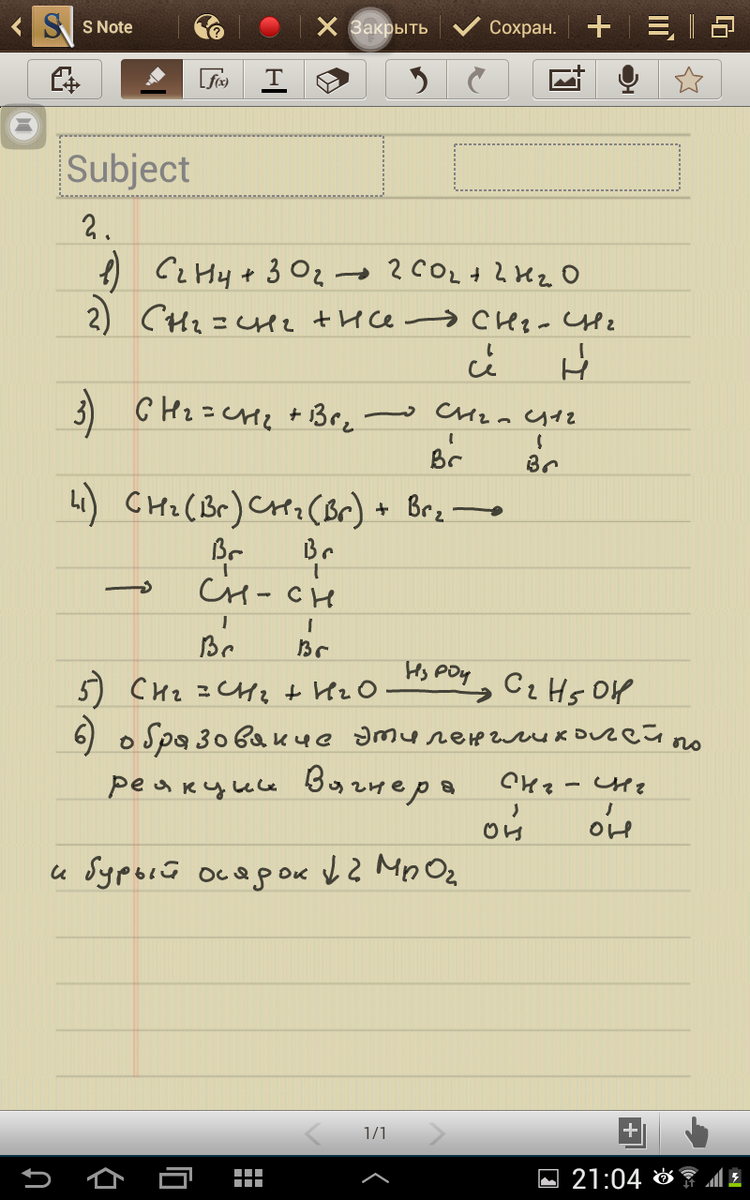 S Note
Закрыть
Сохран.
f(x)
T
Subject
2.
1) C2H4 + 3O2 → 2CO2 + 2H2O
2) CH2 = CH2 + HCl → CH2 - CH2
Cl H
3) CH2 = CH2 + Br2 → CH2 - CH2
Br Br
4) CH2(Br)CH2(Br) + Br2 →
Br Br
→ CH - CH
Br Br
5) CH2 = CH2 + H2O H3PO4 → C2H5OH
6) образование этиленгликолей по
реакции Вагнера CH2 - CH2
OH OH
и бурый осадок ↓ 2 MnO2
1/1
21:04